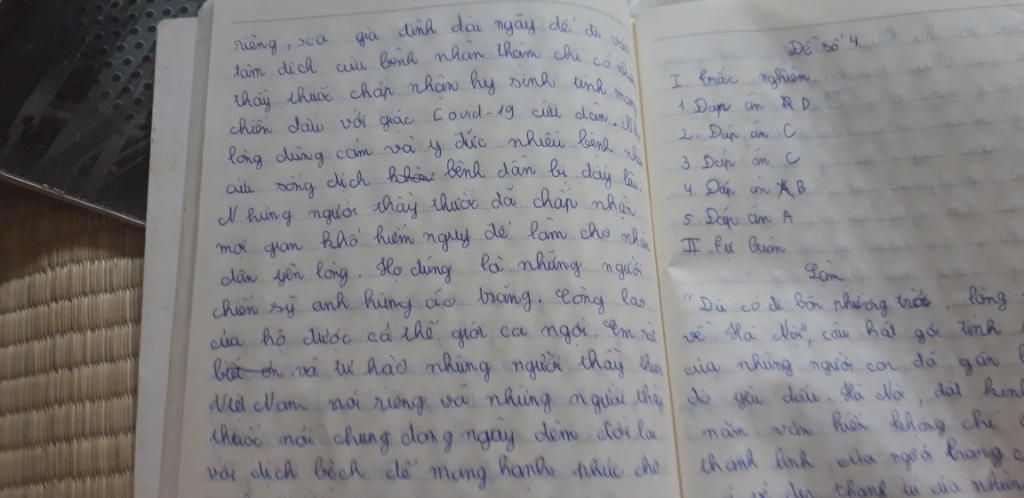 riêng, xa gia đình dài ngày để đi vào
tâm dịch cứu bệnh nhân thậm chí có
thầy thuốc chấp nhận hy sinh tính mạng
chiến đấu với giặc Covid-19 cứu dân.
lòng dũng cảm và y đức nhiều bệnh
cứu sống dịch bệnh dần bị đẩy lùi.
Những người thầy thuốc đã chấp nhận
mọi gian khổ hiểm nguy để làm cho nhân
dân yên lòng. Họ đúng là những người
chiến sỹ anh hùng áo trắng. Công lao
của họ được cả thế giới ca ngợi. Em rất
biết ơn và tự hào những người thầy thuốc
Việt Nam nói riêng và những người thầy
thuốc nói chung đang ngày đêm đối lại
với dịch bệch để mang hạnh phúc cho
Đề số 4
I trắc nghiệm
1. Đáp án D
2. Đáp án C
3 Đáp án C
4. Đáp án B
5. Đáp án A
II. tự luận
Làm
"Dù có đi bốn phương trời, lòng
về Hà Nội", câu hát gợi tình
của những người con đã gắn
đô yêu dấu. Hà Nội, đất kinh
năm văn hiến không chỉ
thanh lịch, của người tràng
vẻ đẹp thanh tú của những